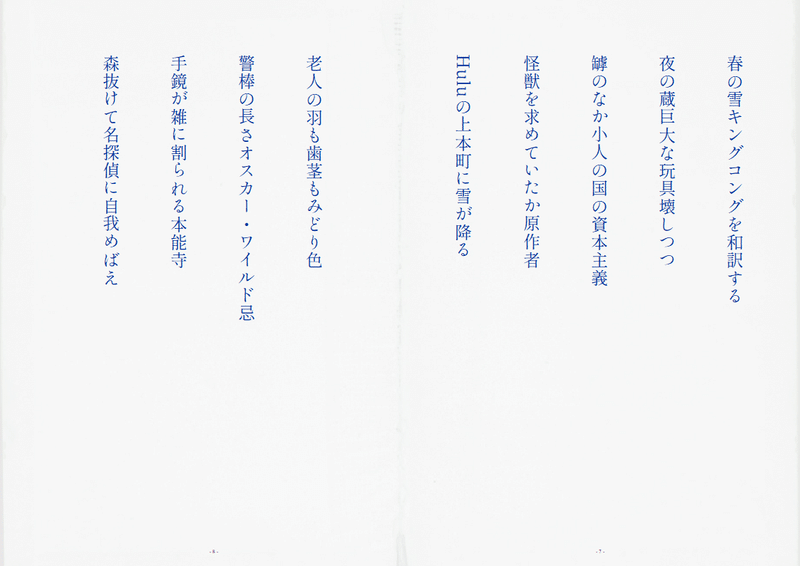 春の雪キングコングを和訳する
夜の蔵巨大な玩具壊しつつ
鱒のなか小人の国の資本主義
怪獣を求めていたか原作者
Huluの上本町に雪が降る
- 7 -
老人の羽も歯茎もみどり色
警棒の長さオスカー・ワイルド忌
手鏡が雑に割られる本能寺
森抜けて名探偵に自我めばえ
- 8 -